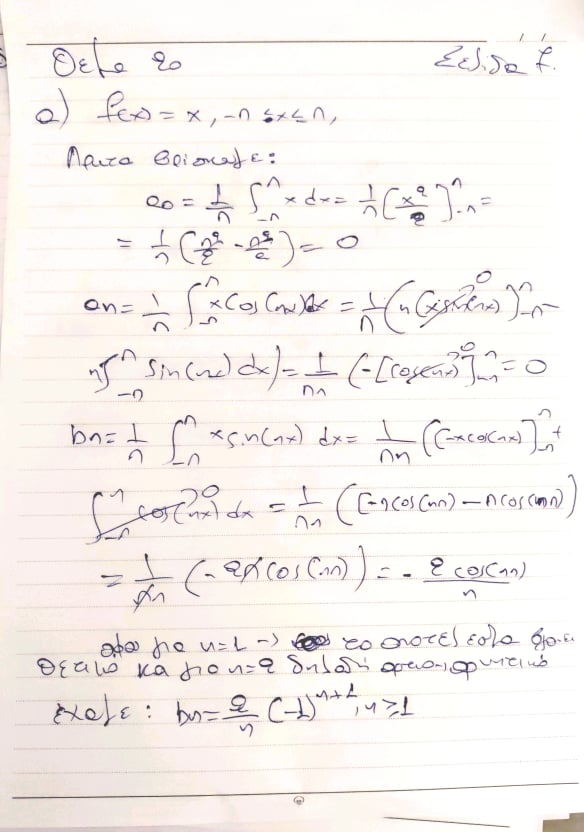 Θέμα 2ο Σελίδα 7.
α) f(x) = x, -π ≤ x ≤ π,
Πρώτα βρίσκουμε:
a₀ = 1/π ∫_{-π}^{π} x dx = 1/π [x²/2]_{-π}^{π} =
= 1/π (π²/2 - π²/2) = 0
an = 1/π ∫_{-π}^{π} x cos(nx) dx = 1/π (n [x sin(nx)]_{-π}^{π} -
n ∫_{-π}^{π} sin(nx) dx) = 1/πn (-[cos(nx)]_{-π}^{π} = 0
bn = 1/π ∫_{-π}^{π} x sin(nx) dx = 1/πn ([-x cos(nx)]_{-π}^{π} +
∫_{-π}^{π} cos(nx) dx = 1/πn ([-π cos(πn) - π cos(πn))
= 1/πn (-2π cos(πn)) = - 2 cos(πn)/n
αφού για n=1 -> το αποτέλεσμα βγαίνει
θετικό και για n=2 δηλαδή άρτιο αρνητικό
έχουμε: bn = 2/n (-1)^{n+1}, n ≥ 1